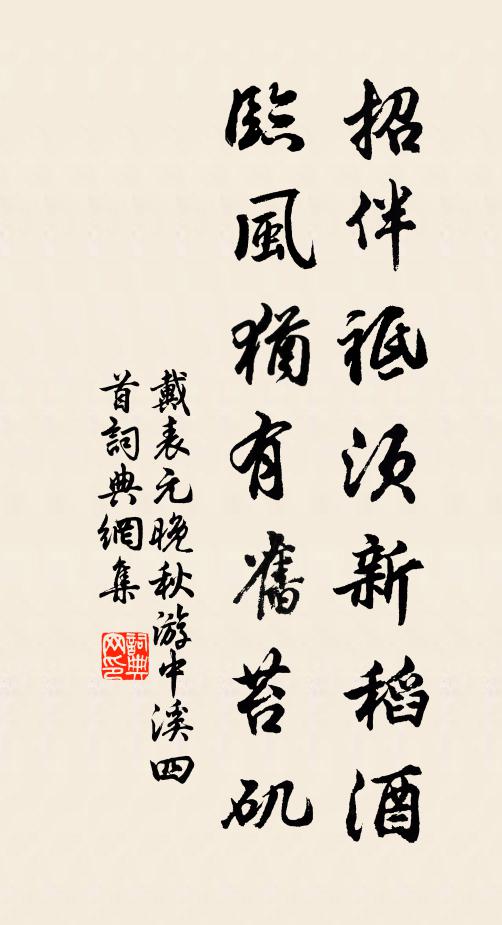 招伴祗須新稻酒
臨風猶有舊苔矶
戴表元晚秋游中溪四
首詞典網集
詞典
网印